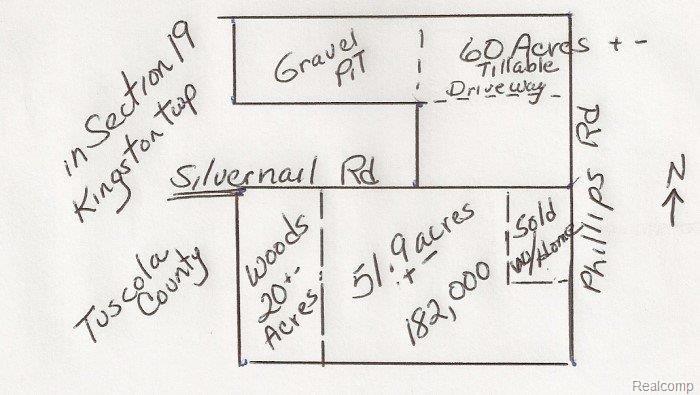 in Section 19
Kingston twp
Gravel
PiT
60 Acres + -
Tillable
Driveway
Silvernail Rd
Phillips Rd
N
Tuscola
County
Woods
20 +-
Acres
51.9 acres
+ -
182,000
Sold
w/Home
Realcomp